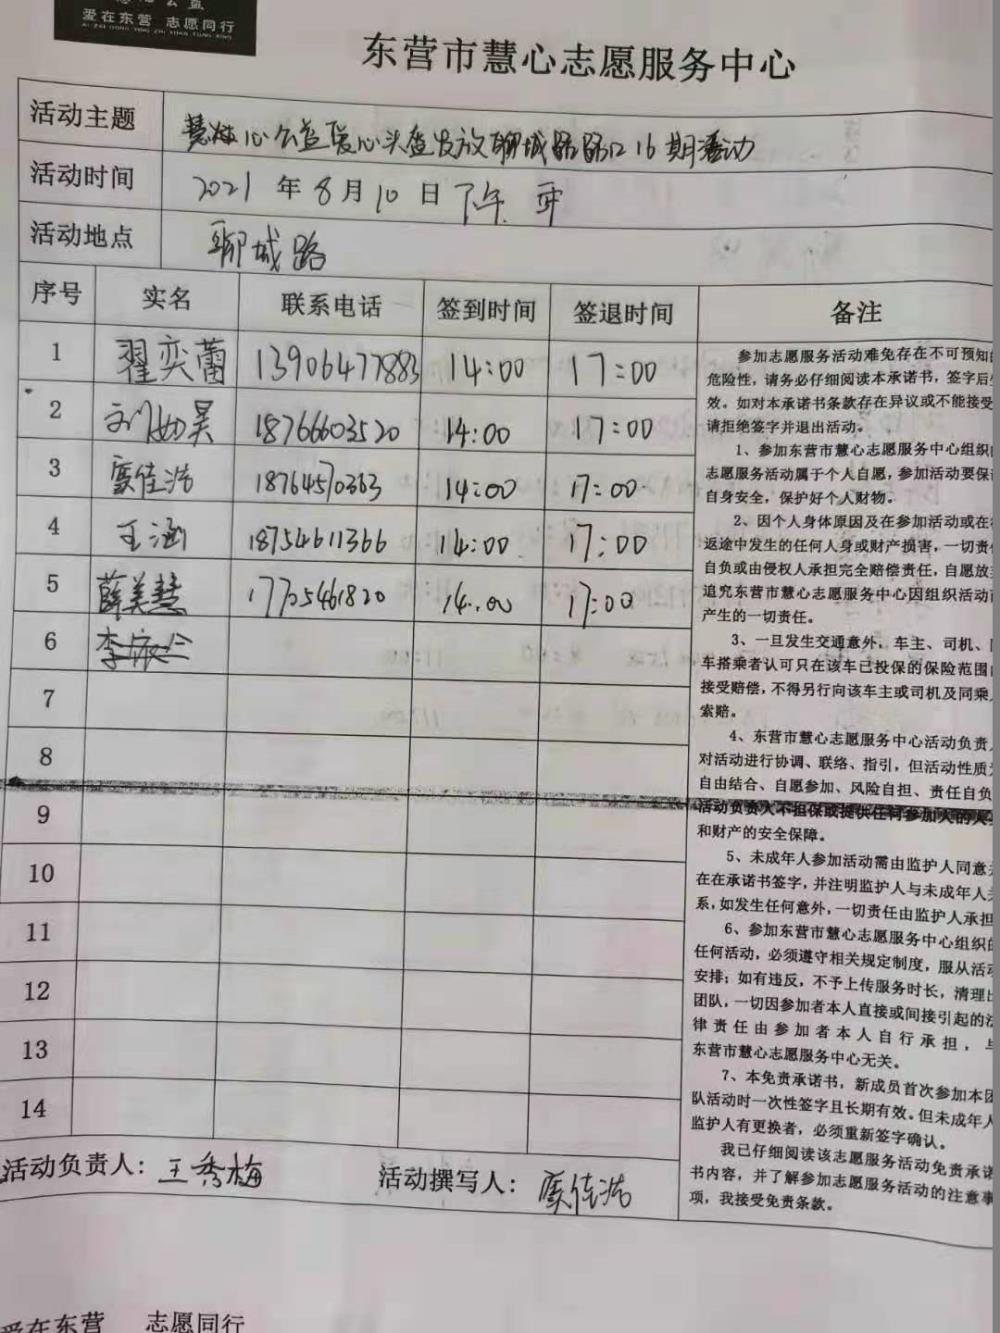 爱在东营 志愿同行
东营市慧心志愿服务中心
活动主题 慧心公益爱心头盔发放聊城路路口16期活动
活动时间 2021年8月10日下午
活动地点 聊城路
序号 实名 联系电话 签到时间 签退时间 备注
1 翟奕蕾 13906477883 14:00 17:00
2 刘如昊 18766603520 14:00 17:00
3 佳浩 18764570363 14:00 17:00
4 王涵 18754611366 14:00 17:00
5 薛美慧 17705461820 14:00 17:00
6 李
7
8
9
10
11
12
13
14
参加志愿服务活动难免存在不可预知的
危险性，请务必仔细阅读本承诺书，签字后
效。如对本承诺书条款存在异议或不能接受
请拒绝签字并退出活动。
1、参加东营市慧心志愿服务中心组织
志愿服务活动属于个人自愿，参加活动要保
自身安全，保护好个人财物。
2、因个人身体原因及在参加活动或在
返途中发生的任何人身或财产损害，一切责
自负或由侵权人承担完全赔偿责任，自愿放
追究东营市慧心志愿服务中心因组织活动
产生的一切责任。
3、一旦发生交通意外，车主、司机、
车搭乘者认可只在该车已投保的保险范围
接受赔偿，不得另行向该车主或司机及同乘
索赔。
4、东营市慧心志愿服务中心活动负责
对活动进行协调、联络、指引，但活动性质
自由结合、自愿参加、风险自担、责任自负
活动负责人不担保或提供任何参加人的人
和财产的安全保障。
5、未成年人参加活动需由监护人同意
在在承诺书签字，并注明监护人与未成年人
系，如发生任何意外，一切责任由监护人承担
6、参加东营市慧心志愿服务中心组织的
任何活动，必须遵守相关规定制度，服从活动
安排；如有违反，不予上传服务时长，清理出
团队，一切因参加者本人直接或间接引起的法
律责任由参加者本人自行承担，与
东营市慧心志愿服务中心无关。
7、本免责承诺书，新成员首次参加本团
队活动时一次性签字且长期有效。但未成年人
监护人有更换者，必须重新签字确认。
我已仔细阅读该志愿服务活动免责承诺
书内容，并了解参加志愿服务活动的注意事
项，我接受免责条款。
活动负责人：王秀梅 活动撰写人：佳浩
爱在东营 志愿同行